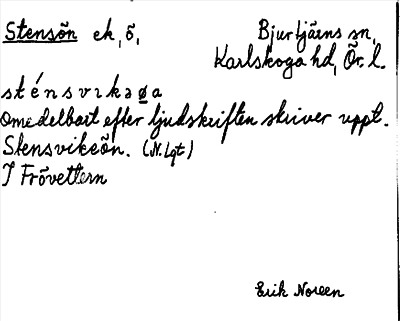 Stensön ek, ö, Bjurtjärns sn,
Karlskoga hd, Ör. l.
sténsvıkəøa
Omedelbart efter ljudskriften skriver uppt.
Stensvikeön. (N. Lgt)
I Frövettern
Erik Noreen